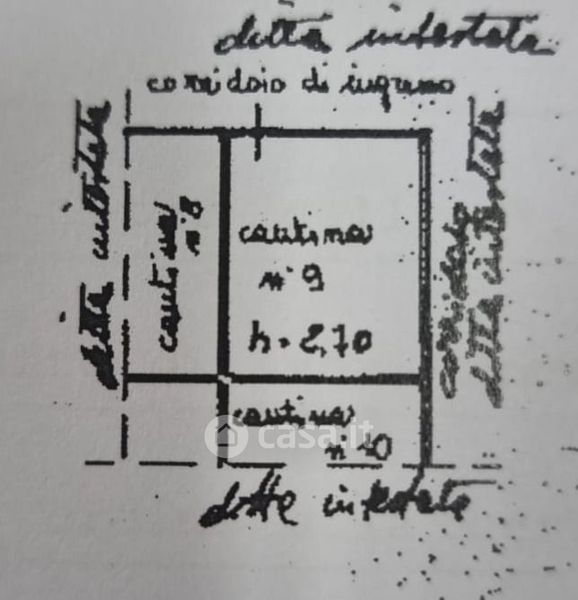 ditta intestata
corridoio di ingresso
ditta intestata
cantina
n° 8
cantina
n° 9
h = 2,70
corridoio
ditta intestata
cantina
n° 10
casa.it
ditta intestata